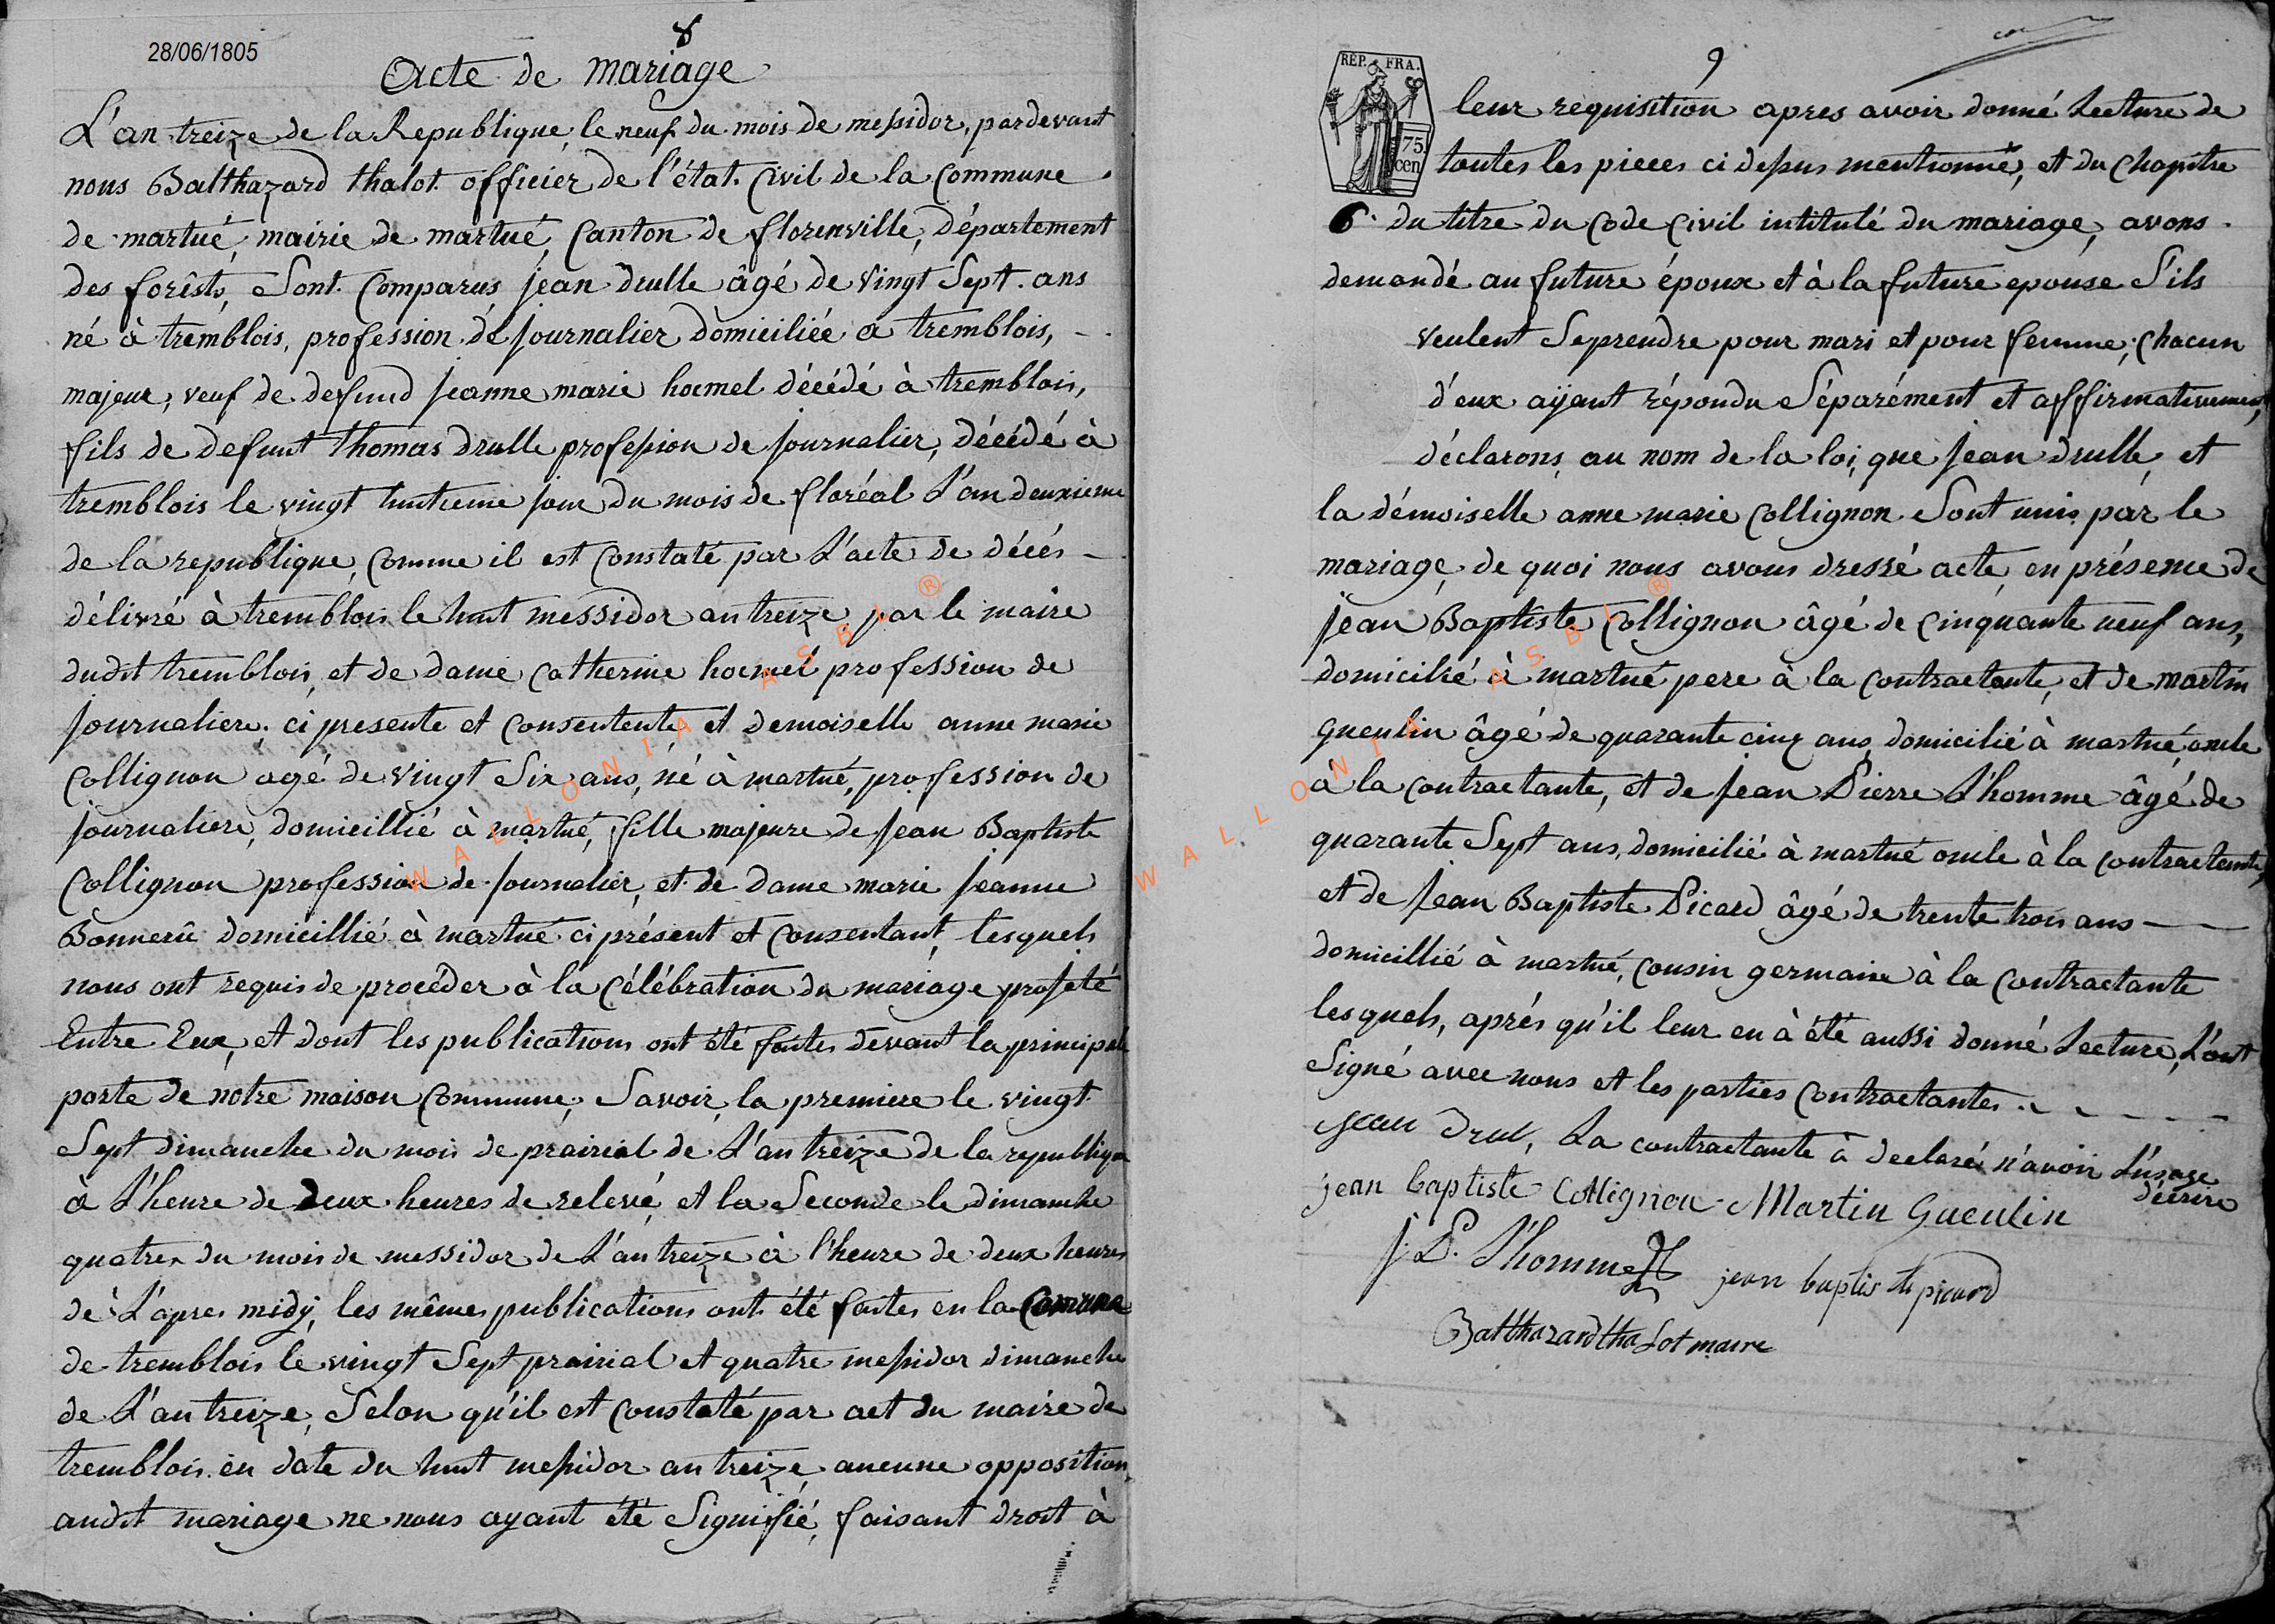 28/06/1805
8
Acte de mariage
L'an treize de la Republique, le neuf du mois de messidor, pardevant
nous Balthazard thalot officier de l'état Civil de la Commune
de martué, mairie de martué, Canton de florenville, Département
des forêsts, Sont Comparus jean drulle âgé de vingt Sept ans
né à tremblois, profession de journalier domiciliée a tremblois,
majeur, veuf de defund jeanne marie hocmel décédé à tremblois,
fils de defunt thomas drulle profession de journalier, décédé à
tremblois le vingt huitieme jour du mois de floréal L'an deuxieme
de la republique, Comme il est Constaté par L'acte de décés
délivré à tremblois le huit messidor an treize par le maire
dudit tremblois, et de dame Catherine hocmel profession de
journaliere, ci presente et Consentente et demoiselle anne marie
Collignon agé de vingt Six ans, né à martué, profession de
journaliere, domicillié à martué, fille majeure de jean Baptiste
Collignon profession de journalier, et de dame marie jeanne
Bonnerû domicillié à martué ci présent et Consentant, lesquels
nous ont requis de procéder à la Célébration du mariage projeté
Entre Eux, et dont les publications ont été faites devant la principale
porte de nôtre maison Commune, Savoir, la premiere le vingt
Sept dimanche du mois de prairial de L'an treize de la republique
à L'heure de deux heures de relevé, et la Seconde le dimanche
quatre du mois de messidor de L'an treize à l'heure de deux heures
de L'apres midÿ, les mêmes publications ont été faites en la Comune
de tremblois le vingt Sept prairial et quatre messidor dimanche
de L'an treize, Selon qu'il est Constaté par act du maire de
tremblois en date du huit messidor an treize, aucune opposition
audit mariage ne nous ayant été Signifié, faisant droit à
9
REP. FRA.
75
cen
leur requisition apres avoir donné Lecture de
toutes les pieces ci dessus mentionné, et du Chapitre
6 du titre du Code Civil intitulé du mariage, avons
demandé au future époux et à la future epouse S'ils
veulent Se prendre pour mari et pour femme; Chacun
d'eux aÿant répondu Séparément et affirmativement,
déclarons, au nom de la loi, que jean drulle et
la démoiselle anne marie Collignon Sont unis par le
mariage, de quoi nous avons dressé acte, en présence de
jean Baptiste Collignon âgé de Cinquante neuf ans,
domicilié à martué pere à la Contractante, et de martin
gueulin âgé de quarante cinq ans domicilié à martué, oncle
à la Contractante, et de jean Pierre L'homme âgé de
quarante Sept ans, domicilié à martué oncle à la Contractante,
et de jean Baptiste Picard âgé de trente trois ans
domicillié à martué, Cousin germaine à la Contractante
lesquels, aprés qu'il leur en à été aussi donné Lecture, L'ont
Signé avec nous et les parties Contractantes
jean drul, La contractante à declaré n'avoir L'usage
décrire
jean baptiste Collignon Martin Gueulin
j. P. L'homme jean baptis te picard
Balthazard thalot maire
WALLONIA ASBL ®
WALLONIA ASBL ®